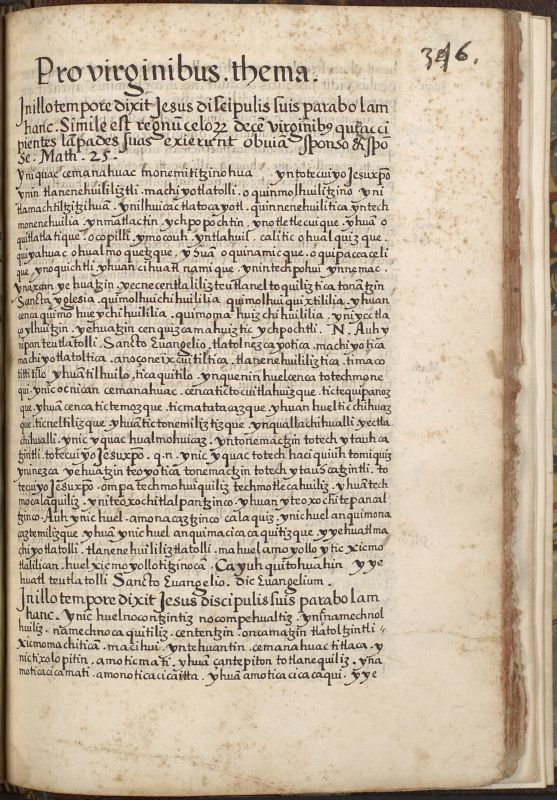 396.
Pro virginibus. thema.
In illo tempore dixit Jesus discipulis suis parabolam
hanc. Simile est regnũ celoꝝ decẽ virginibꝰ quae acci
pientes lãpades suas exierunt obviã sponso & spõ
se. Math. 25.
Yniquac cemanahuac monemititzino hua yn totecuiyo Jesu xp̃o
ynin tlanenehuililiztli. machiyotlatolli. oquinmolhuilitzino yni
tlamachtiltzitzihuã. ynilhuicac tlatocayotl. quinnenehuilitica yntech
monenehuilia. ynmatlactin. ychpopochtin. ynotletlecuique. yhuã o
quitlatlatique. ocopilli. ymocouh. yntlahuil. calitic ohualquizque.
quiyahuac ohualmoquetzque. yhuã oquinamicque. oquipaccaceli
que. ynoquichtli. yhuan cihuatl namique. ynintechpohui ynnemac.
ynaxcan ye huatzin. yecnecentlaliliz teutlaneltoquiliztica tonãtzin
Sancta yglesia. quimolhuichihuililia. quimolhuiquixtililia. yhuan
cenca quimo hueychihuililia. quimomahuizchihuililia. yniyectla
çoylhuitzin. yehuatzin cenquizcamahuiztic ychpochtli. N. Auh y
nipan teutlatolli. Sancto Euangelio. tlatolnezcayotica. machiyotica
machiyotlatoltica. anoço neixcuitiltica. tlanenehuililiztica. timaco
titlitillo. yhuã tilhuilo, ticaquitilo. ynquenin huelcenca totechmone
qui. ynic ocnican cemanahuac. cenca tictocuitlahuizque. tictequipanoz
que. yhuã cenca tictemozque. ticmatatacazque. yhuan hueltic chihuaz
que. ticneltilizque. yhuã tictonemiliztizque. ynquallachihualli yectla
chihualli. ynic yquac hualmohuicaz. yntonemactzin totech ytauhca
tzintli. totecuiyo Jesu xp̃o. q.n. ynic yquac totech haciquiuh tomiquiz
yninezca yehuatzin teoyoticã tonemactzin totech ytauhcatzintli. to
tecuiyo Jesu xp̃o. ompa techmohuiquiliz techmotlecahuiliz. yhuã tech
mocalaquiliz. ynitxoxochitlalpantzinco. yhuan yteoxochitepancal
tzinco. Auh ynic huel. amonacaztzinco calaquiz. ynic huel anquimona
caztemilizque yhuã ynic huel anquimacicacaquitizque. yyehuatl ma
chiyotlatolli. tlanenehuililiztlatolli. ma huel amoyollo ytic xicmo
tlalilican. huel xicmoyollotitzinocã. Ca yuh quitohuahin yye
huatl teutlatolli Sancto Euangelio. dic Euangelium.
In illo tempore dixit Jesus discipulis suis parabolam
hanc. ynic huel nocontzintiz nocompehualtiz. ynin namechnol
huiliz. namechnocaquitiliz. cententzin. oncamatzin tlatoltzintli
xicmomachiticã. macihui. yntehuantin cemanahuac titlaca. y
nictixolopitin. amo ticmati. yhuã cantepiton totlanequiliz. yna
moticacicamati. amonoticacicaitta. yhuã amoticacicacaqui. yye